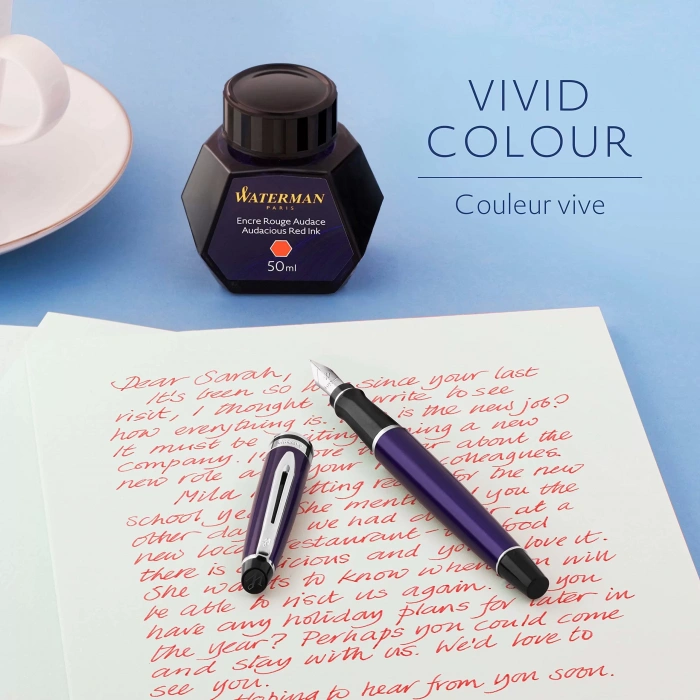 VIVID
COLOUR
Couleur vive
WATERMAN
PARIS
Encre Rouge Audace
Audacious Red Ink
50ml
Dear Sarah,
It's been so since your last
visit, I thought write to see
how everything is. is the new job?
It must be a new
company. about the
new role your colleagues.
for the new
school She you the
other we had at a
new restaurant food
there is and love it.
She to know when will
be able to visit us again. you
have any holiday plans for later in
the year? Perhaps you could come
and stay with us. We'd love to
see you.
Hoping to hear from you soon.